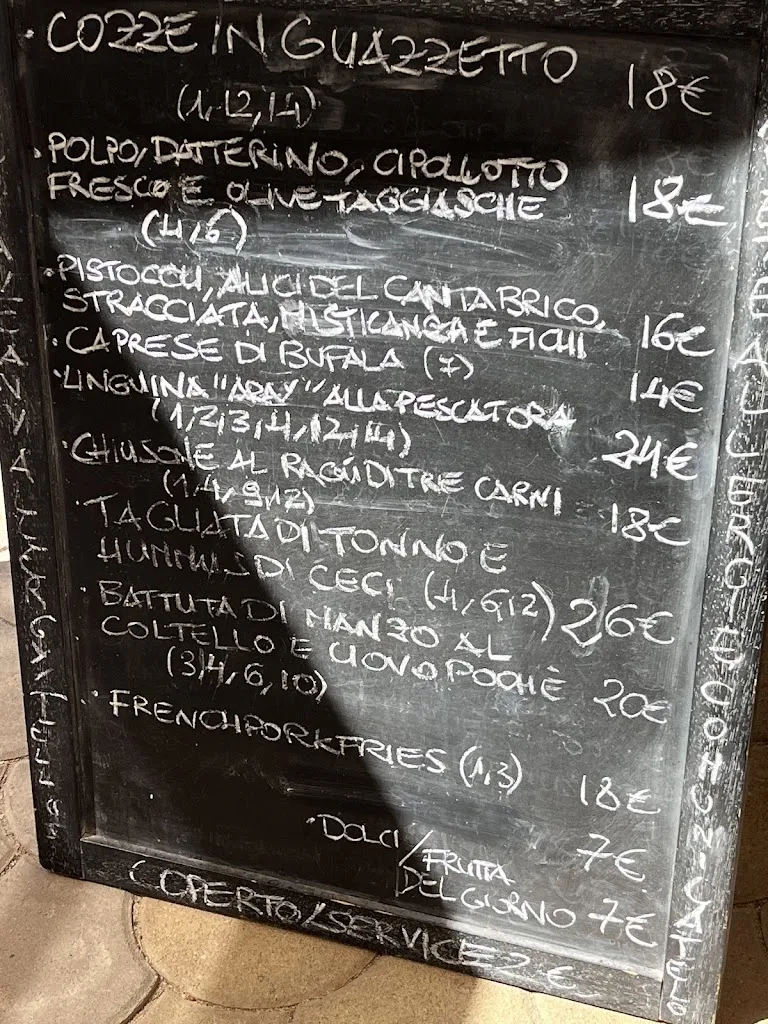 · COZZE IN GUAZZETTO 18€
(1,12,14)
· POLPO, DATTERINO, CIPOLLOTTO
FRESCO E OLIVE TAGGIASCHE 18€
(4,6)
· PISTOCCU, ALICI DEL CANTABRICO,
STRACCIATA, MISTICANZA E FICHI 16€
· CAPRESE DI BUFALA (7) 14€
· LINGUINA "ARAY" ALLA PESCATORA
(1,2,3,4,12,14) 24€
· CHIUSONE AL RAGÚ DI TRE CARNI
(1,4,9,12) 18€
· TAGLIATA DI TONNO E
HUMMUS DI CECI (4,6,12) 26€
· BATTUTA DI MANZO AL
COLTELLO E UOVO POCHÈ
(3,4,6,10) 20€
· FRENCH PORK FRIES (1,3) 18€
· DOLCI / 7€
FRUTTA
DEL GIORNO 7€
COPERTO/SERVICE 2€
ALLERGIE COMUNICATELE